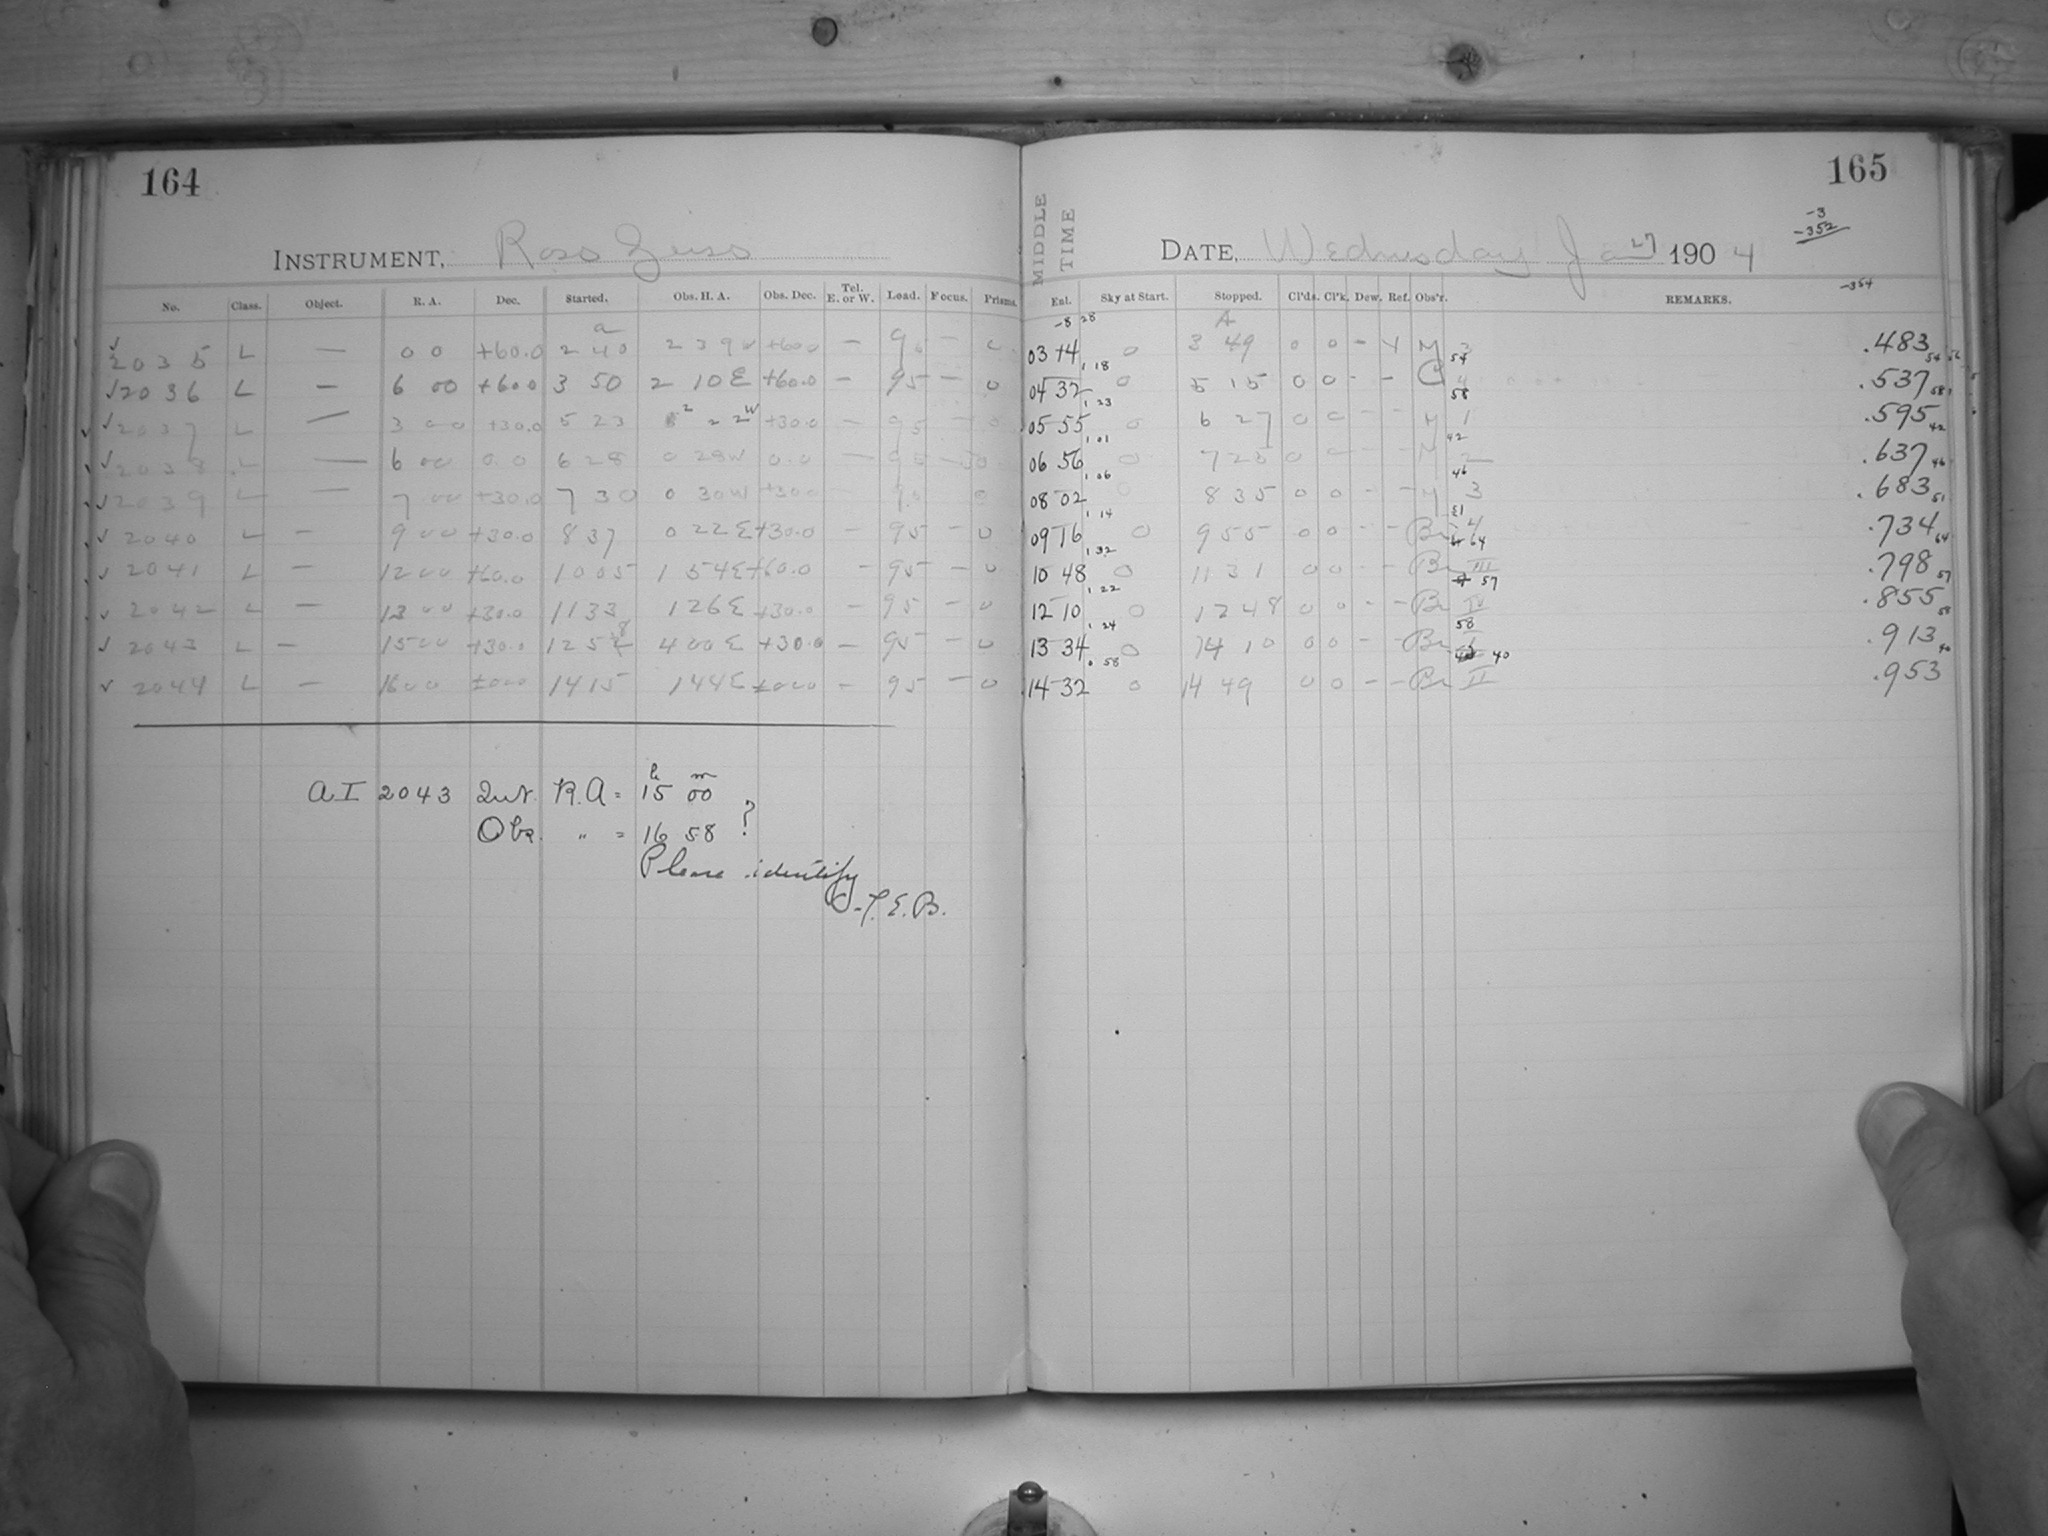 164
INSTRUMENT, Ross Zeiss
No. Class. Object. R. A. Dec. Started. Obs. H. A. Obs. Dec. Tel. E. or W. Load. Focus. Prisms.
a
✓ 2035 L — 0 0 +60.0 2 40 2 39 W +60.0 — 95 — 0
✓ 2036 L — 6 00 +60.0 3 50 2 10 E +60.0 — 95 — 0
✓ 2037 L — 3 00 +30.0 5 23 2 22 W +30.0 — 95 — 0
✓ 2038 L — 6 00 0.0 6 28 0 28 W 0.0 — 95 — 0
✓ 2039 L — 7 00 +30.0 7 30 0 30 W +30.0 95 0
✓ 2040 L — 9 00 +30.0 8 37 0 22 E +30.0 — 95 — 0
✓ 2041 L — 12 00 +60.0 10 05 1 54 E +60.0 — 95 — 0
✓ 2042 L — 13 00 +30.0 11 33 1 26 E +30.0 — 95 — 0
✓ 2043 L — 15 00 +30.0 12 58 4 00 E +30.0 — 95 — 0
✓ 2044 L — 16 00 ±00.0 14 15 1 44 E ±00.0 — 95 — 0
h m
A I 2043 Int. R.A = 15 00
Obs. " = 16 58 ?
Please identify
T. E. B.
165
-3
-352
MIDDLE TIME
DATE, Wednesday Jan 27 1904
-354
Enl. Sky at Start. Stopped. Cl'ds. Cl'k. Dew. Ref. Obs'r. REMARKS.
-8 28 A
03 14 0 3 49 0 0 - Y M 3 .483
1 18 54 54
04 32 0 5 15 0 0 - - C 4 .537
1 23 58 58
05 55 0 6 27 0 0 M 1 .595
1 01 42 42
06 56 0 7 25 0 0 M 2 .637
1 06 46 46
08 02 0 8 35 0 0 - - M 3 .683
1 14 51 51
09 16 0 9 55 0 0 - - Br .734
1 32 64 64
10 48 0 11 31 0 0 - - Br III .798
1 22 57 57
12 10 0 12 48 0 0 - - Br IV .855
1 24 58 58
13 34 0 14 10 0 0 - - Br .913
0 58 40 40
14 32 0 14 49 0 0 - - Br II .953